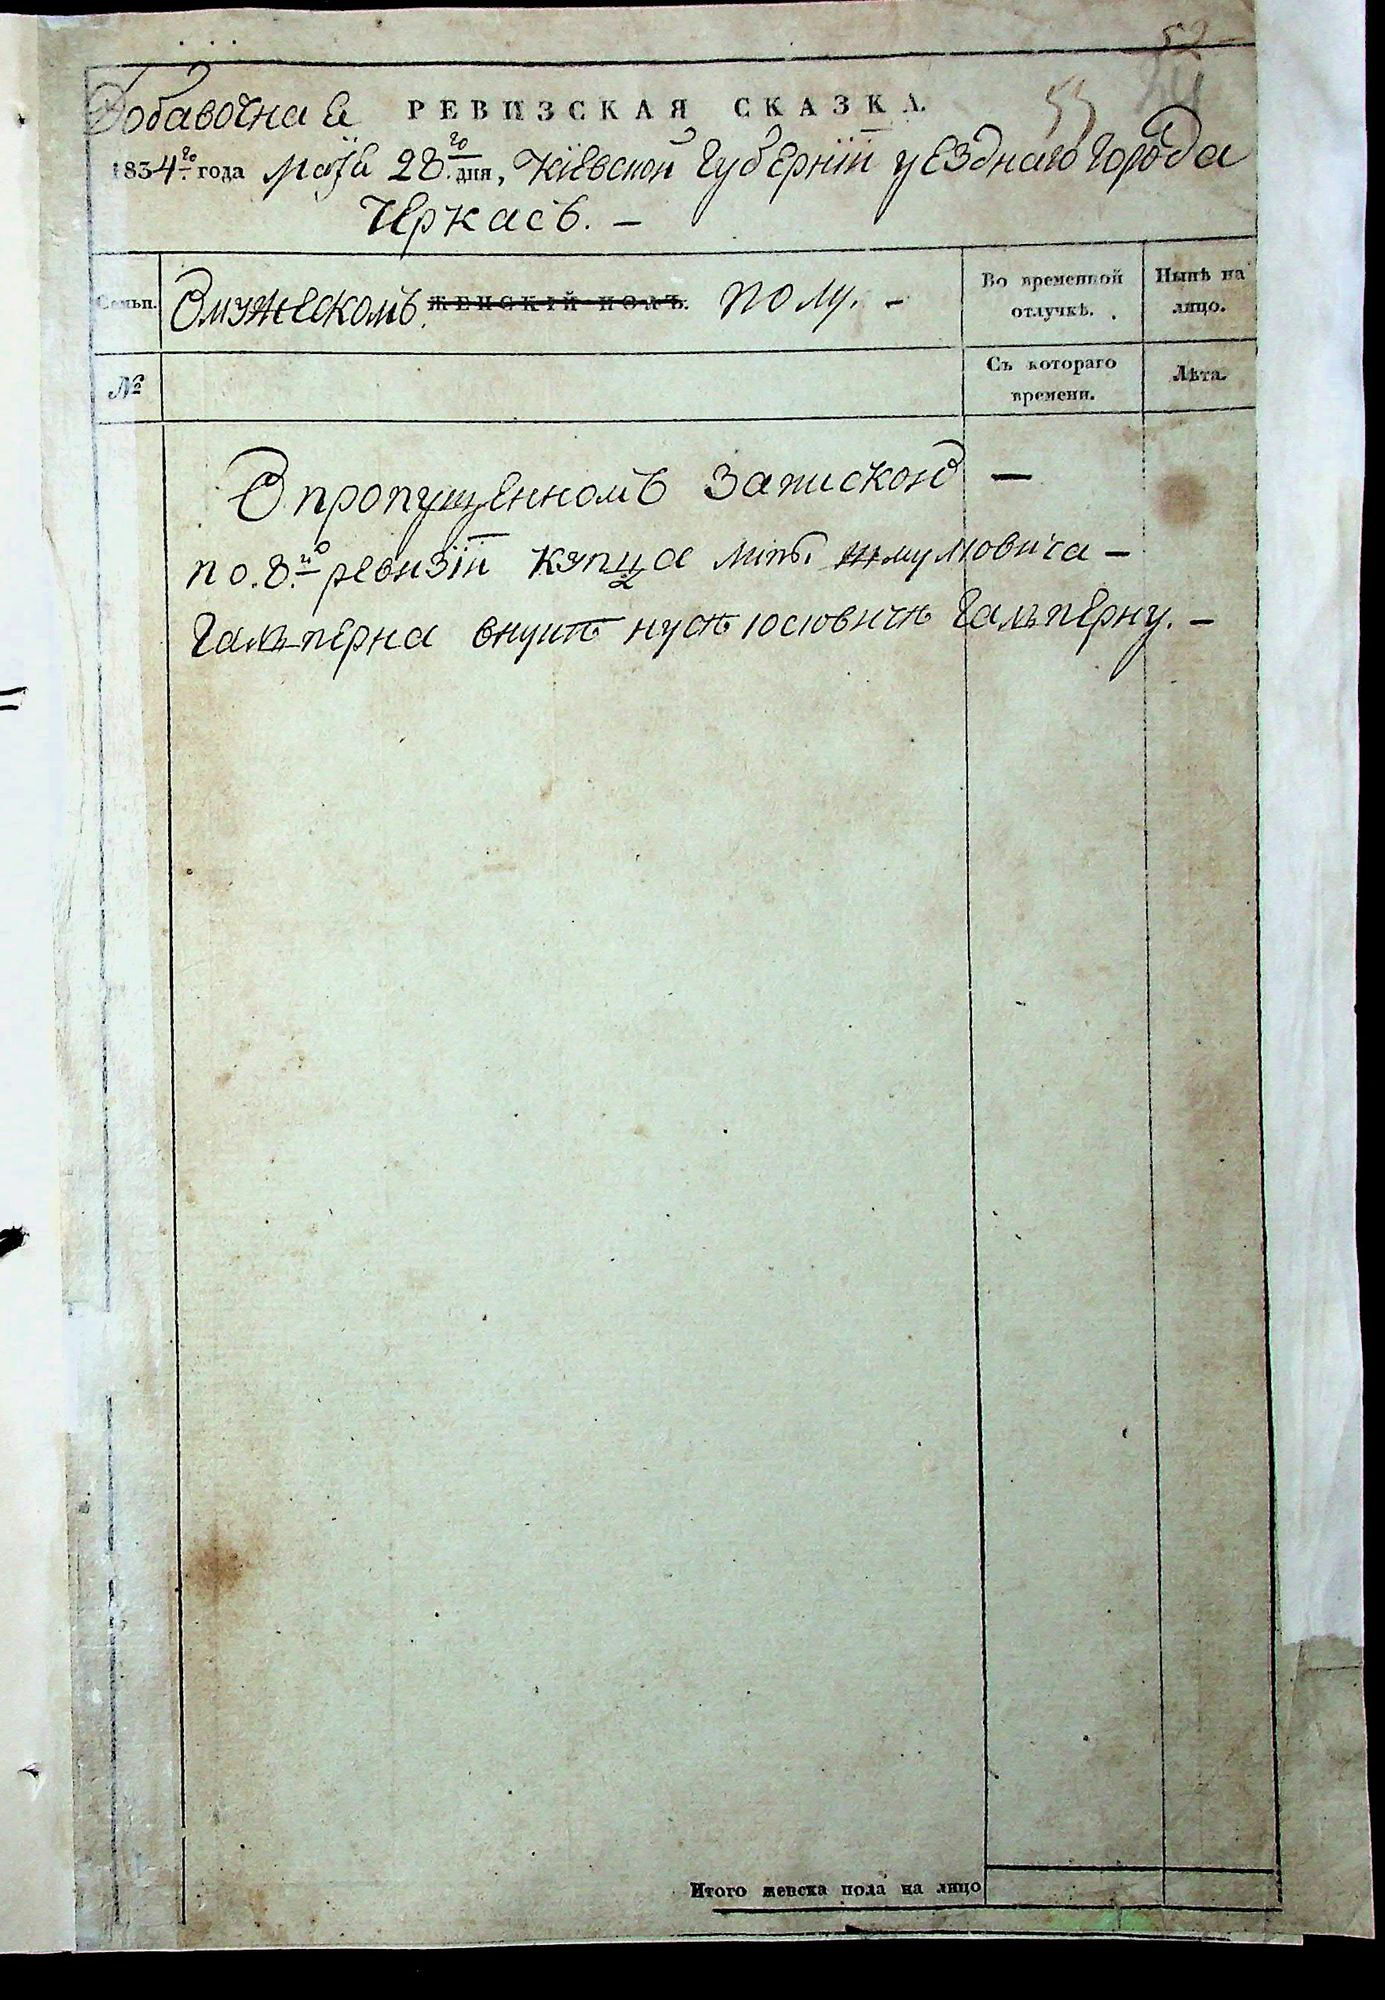 52
Добавочная РЕВИЗСКАЯ СКАЗКА
53
24
1834го года Маія 28го дня, Кіевской Губерніи уезднаго города
Черкасъ. —
Семьи. О мужескомъ ЖЕНСКІЙ ПОЛЪ. полу. —
Во временной отлучкѣ.
Нынѣ на лицо.
№
Съ котораго времени.
Лѣта.
О пропущенномъ запискою —
по. 8й ревизіи купца
Гальперна внуке Іосіовиче Гальперну. —
Итого женска пола на лицо